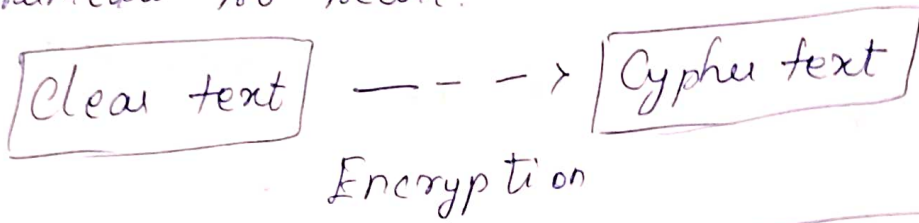 Clear text - - - > Cypher text
Encryption